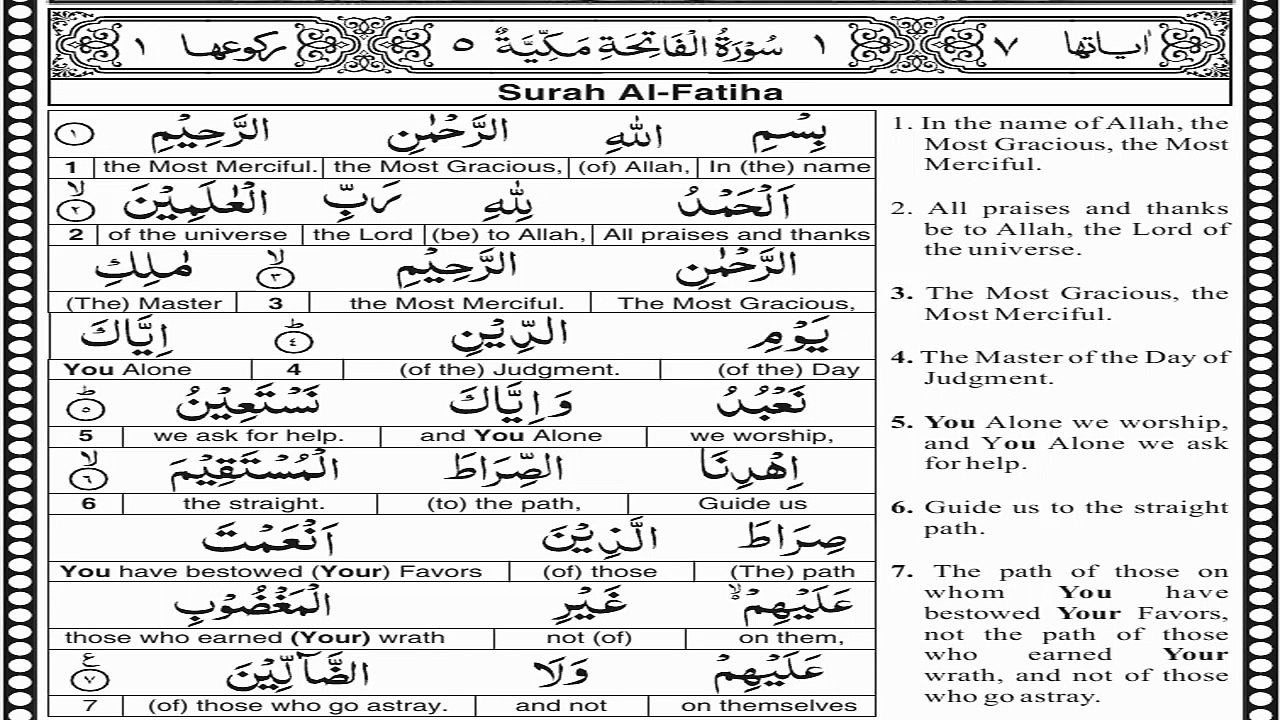 اٰیاتها ٧ ١ سُوْرَةُ الْفَاتِحَةِ مَكِّيَّةٌ ٥ ركوعها ١
Surah Al-Fatiha
بِسْمِ اللهِ الرَّحْمٰنِ الرَّحِيْمِ ١
1 the Most Merciful. the Most Gracious, (of) Allah, In (the) name
اَلْحَمْدُ لِلّٰهِ رَبِّ الْعٰلَمِيْنَ ۙ ٢
2 of the universe the Lord (be) to Allah, All praises and thanks
الرَّحْمٰنِ الرَّحِيْمِ ۙ ٣ مٰلِكِ
(The) Master 3 the Most Merciful. The Most Gracious,
يَوْمِ الدِّيْنِ ؕ ٤ اِيَّاكَ
You Alone 4 (of the) Judgment. (of the) Day
نَعْبُدُ وَاِيَّاكَ نَسْتَعِيْنُ ؕ ٥
5 we ask for help. and You Alone we worship,
اِهْدِنَا الصِّرَاطَ الْمُسْتَقِيْمَ ۙ ٦
6 the straight. (to) the path, Guide us
صِرَاطَ الَّذِيْنَ اَنْعَمْتَ
You have bestowed (Your) Favors (of) those (The) path
عَلَيْهِمْ ۙ غَيْرِ الْمَغْضُوْبِ
those who earned (Your) wrath not (of) on them,
عَلَيْهِمْ وَلَا الضَّآلِّيْنَ ع ٧
7 (of) those who go astray. and not on themselves
1. In the name of Allah, the
Most Gracious, the Most
Merciful.
2. All praises and thanks
be to Allah, the Lord of
the universe.
3. The Most Gracious, the
Most Merciful.
4. The Master of the Day of
Judgment.
5. You Alone we worship,
and You Alone we ask
for help.
6. Guide us to the straight
path.
7. The path of those on
whom You have
bestowed Your Favors,
not the path of those
who earned Your
wrath, and not of those
who go astray.